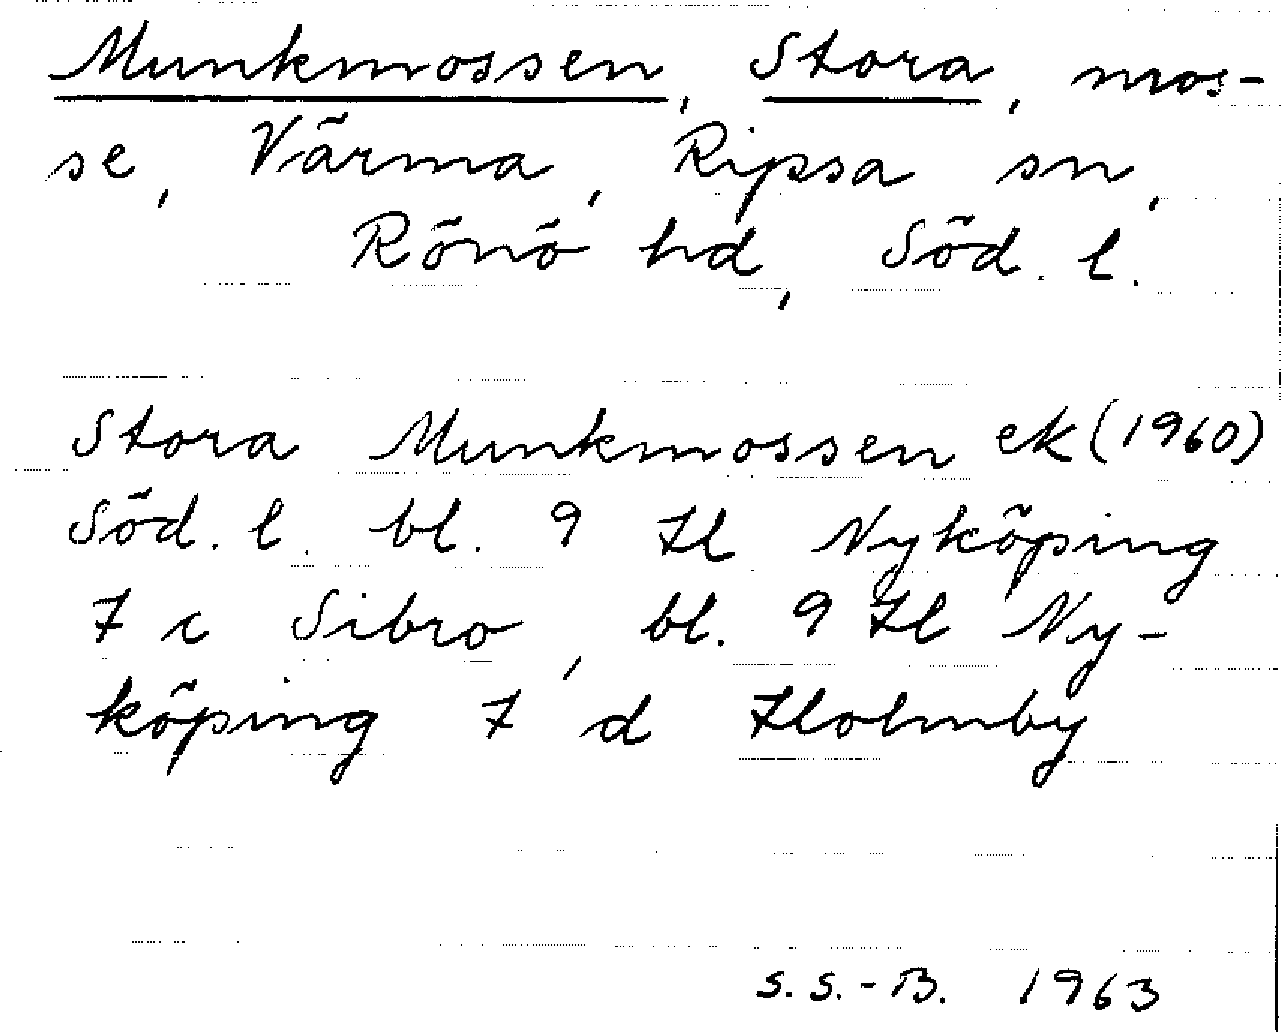 Munkmossen, Stora, mos-
se, Värma, Ripsa sn,
Rönö hd, Söd. l.
Stora Munkmossen ek (1960)
Söd. l. bl. 9 H Nyköping
7 c Sibro, bl. 9 H Ny-
köping 7 d Holmby
S.S.-B. 1963